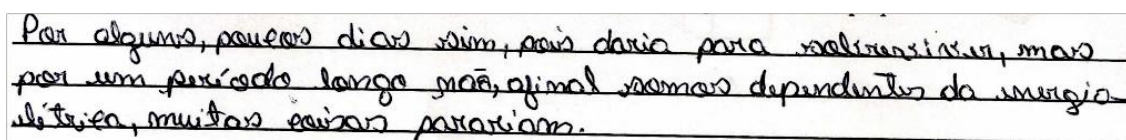 Por alguns, poucos dias sim, pois daria para sobreviver, mas
por um período longo não, afinal somos dependentes da energia
elétrica, muitas coisas parariam.